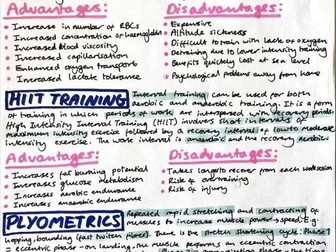 Advantages:
Disadvantages:
• Increase in number of RBCs
• Increased concentration of haemoglobin
• Increased blood viscosity
• Increased capillarisation
• Enhanced oxygen transport
• Increased lactate tolerance
• Expensive
• Altitude sickness
• Difficult to train with lack of oxygen
• Detraining due to lower intensity training
• Benefits quickly lost at sea level
• Psychological problems away from home
HIIT TRAINING
Interval training can be used for both
aerobic and anaerobic training. It is a form
of training in which periods of work are interspersed with recovery periods.
High Intensity Interval Training (HIIT) involves short intervals of
maximum intensity exercise followed by a recovery interval of low to moderate
intensity exercise. The work interval is anaerobic and the recovery aerobic.
Advantages:
Disadvantages:
• Increases fat burning potential
• Increases glucose metabolism
• Increases aerobic endurance
• Increases anaerobic endurance
• Takes longer to recover from each work session
• Risk of overtraining
• Risk of injury
PLYOMETRICS
Repeated rapid stretching and contracting of
muscles to increase muscle power + speed. E.g.
hopping, bounding (fast twitch fibres). There is the stretch shortening cycle: Phase
eccentric phase - on landing, the muscle performs an eccentric